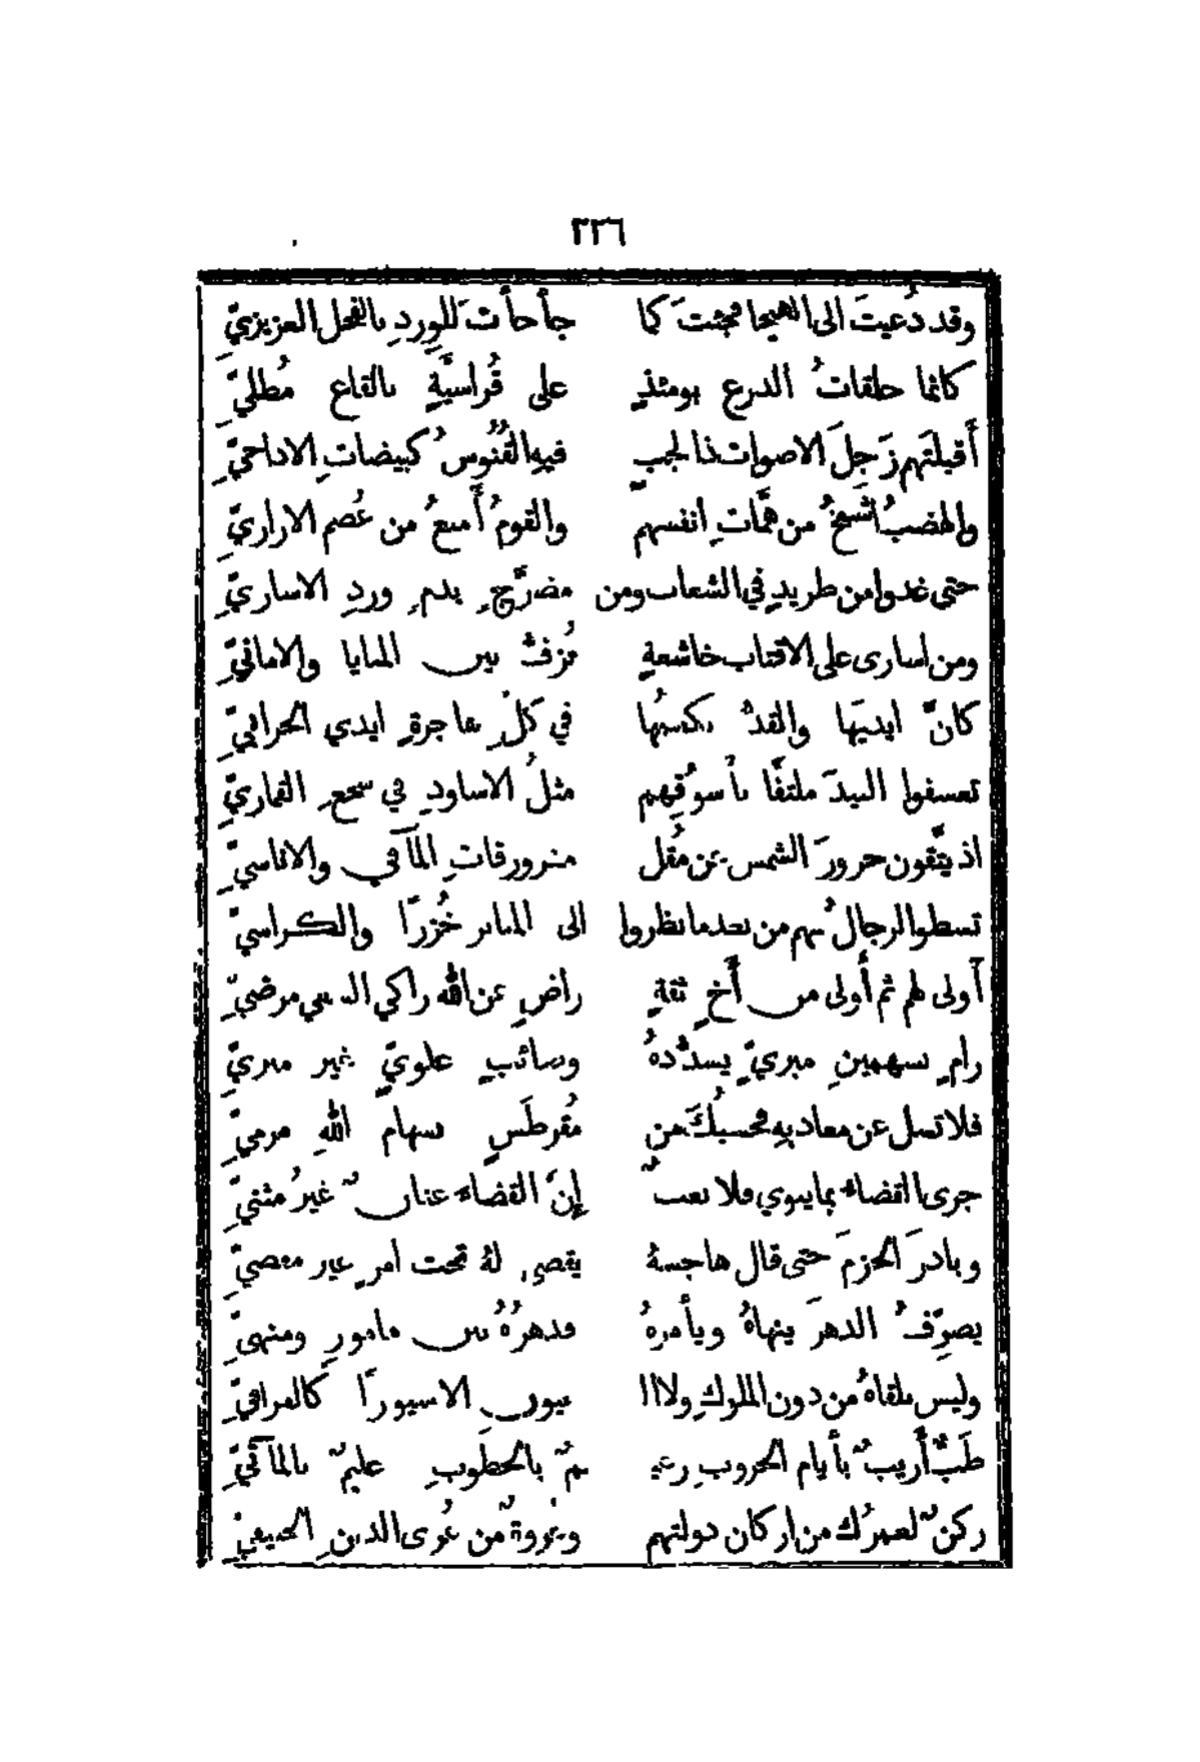 ٢٢٦
وقد دُعيتَ الى الهيجا فجئتَ كما جأجأتَ للوِردِ بالفحل العزيزيِّ
كانما حلقاتُ الدرع يومئذٍ على قُراسيَّةٍ بالقاع مُطليِّ
أقبلتَهم زَجِلَ الاصوات ذا لجبٍ فيهِ القُنُوسُ كبيضاتِ الاداحيِّ
والهضبُ اشمخُ من همَّاتِ انفسهم والقومُ أمنعُ من عُصم الاراريِّ
حتى غدوا من طريدٍ في الشعاب ومن مضرَّجٍ بدمٍ وردِ الاساريِّ
ومن اسارى على الاقتاب خاشعةٍ تُزفُّ بين المنايا والامانيِّ
كانَّ ايديَها والقدُّ يكسبُها في كلِّ هاجرةٍ ايدي الحرابيِّ
تعسفوا البيدَ ملتفًّا بأسوُقِهم مثلُ الاساودِ في سجع القماريِّ
اذ يتَّقون حرورَ الشمس عن مُقل مزورقاتِ المآقي والاناسيِّ
تسطو الرجالُ بهم من بعد ما نظروا الى المنابر خُزرًا والكراسيِّ
أولى لهم ثم أولى من أخٍ ثقةٍ راضٍ عن الله زاكي السعي مرضيِّ
رامٍ بسهمينِ مبريٍّ يسدِّدهُ وصائبٍ علويٍّ غير مبريِّ
فلا تسل عن معاديهِ فحسبُكَ من مُقرطَسٍ بسهام اللهِ مرميِّ
جرى القضاءُ بما ينوي فلا تعبٌ إنَّ القضاءَ عنانٌ غيرُ مثنيِّ
وبادرَ الحزمَ حتى قال هاجسهُ يقضي لهُ تحت امرٍ غير معصيِّ
يصرِّفُ الدهرَ ينهاهُ ويأمرهُ فدهرُهُ بين مامورٍ ومنهيِّ
وليس تلقاهُ من دون الملوكِ ولا ا لا سيورًا كالعراقيِّ
طَبٌّ أريبٌ بأيام الحروبِ زعيـ ـمٌ بالخطوبِ عليمٌ بالمآقيِّ
ركنٌ لعمرُك من اركان دولتهم وعُروةٌ من عُرى الدينِ الحنيفيِّ